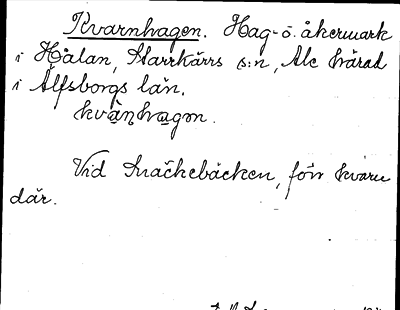 Kvarnhagen. Hag- o. åkermark
i Hålan, Starrkärrs s:n, Ale härad
i Älfsborgs län.
kvànhagon.
Vid Snäckebäcken, förr kvarn
där.